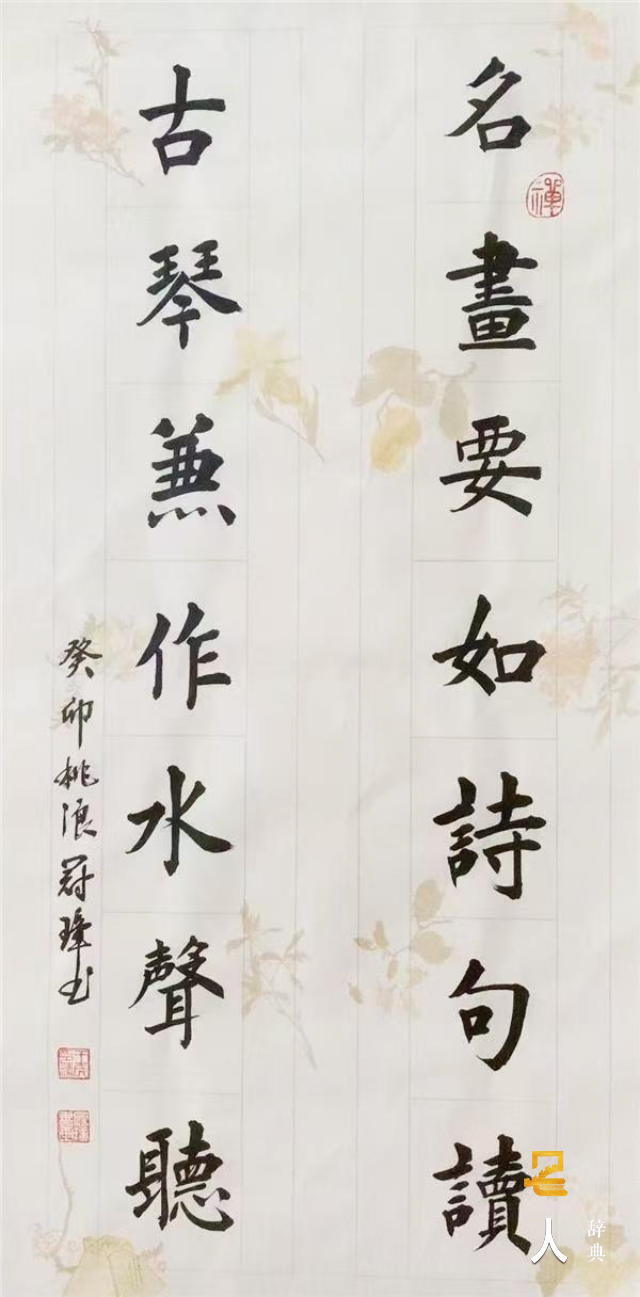 名畫要如詩句讀
古琴兼作水聲聽
癸卯桃浪冠璋书
禪
名人辞典